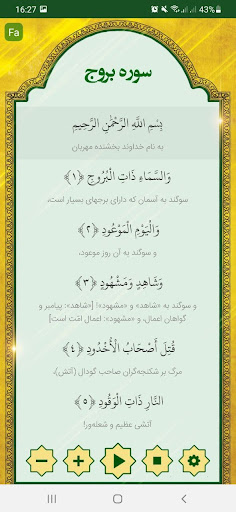 16:27
43%
Fa
سوره بروج
بِسْمِ اللَّهِ الرَّحْمَٰنِ الرَّحِيمِ
به نام خداوند بخشنده مهربان
وَالسَّمَاءِ ذَاتِ الْبُرُوجِ ﴿١﴾
سوگند به آسمان که دارای برجهای بسیار است،
وَالْيَوْمِ الْمَوْعُودِ ﴿٢﴾
و سوگند به آن روز موعود،
وَشَاهِدٍ وَمَشْهُودٍ ﴿٣﴾
و سوگند به «شاهد» و «مشهود»! [«شاهد»: پیامبر و
گواهان اعمال، و «مشهود»: اعمال امّت است]
قُتِلَ أَصْحَابُ الْأُخْدُودِ ﴿٤﴾
مرگ بر شکنجه‌گران صاحب گودال (آتش)،
النَّارِ ذَاتِ الْوَقُودِ ﴿٥﴾
آتشی عظیم و شعله‌ور!